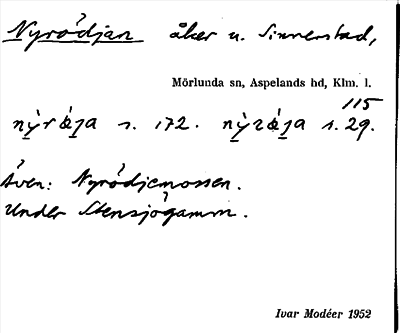 Nyrödjan åker u. Sinnerstad,
Mörlunda sn, Aspelands hd, Klm. l.
115
nỳrǿja s. 172. nỳrǿja s. 29.
Även: Nyrödjemossen.
Under Stensjögamm.
Ivar Modéer 1952